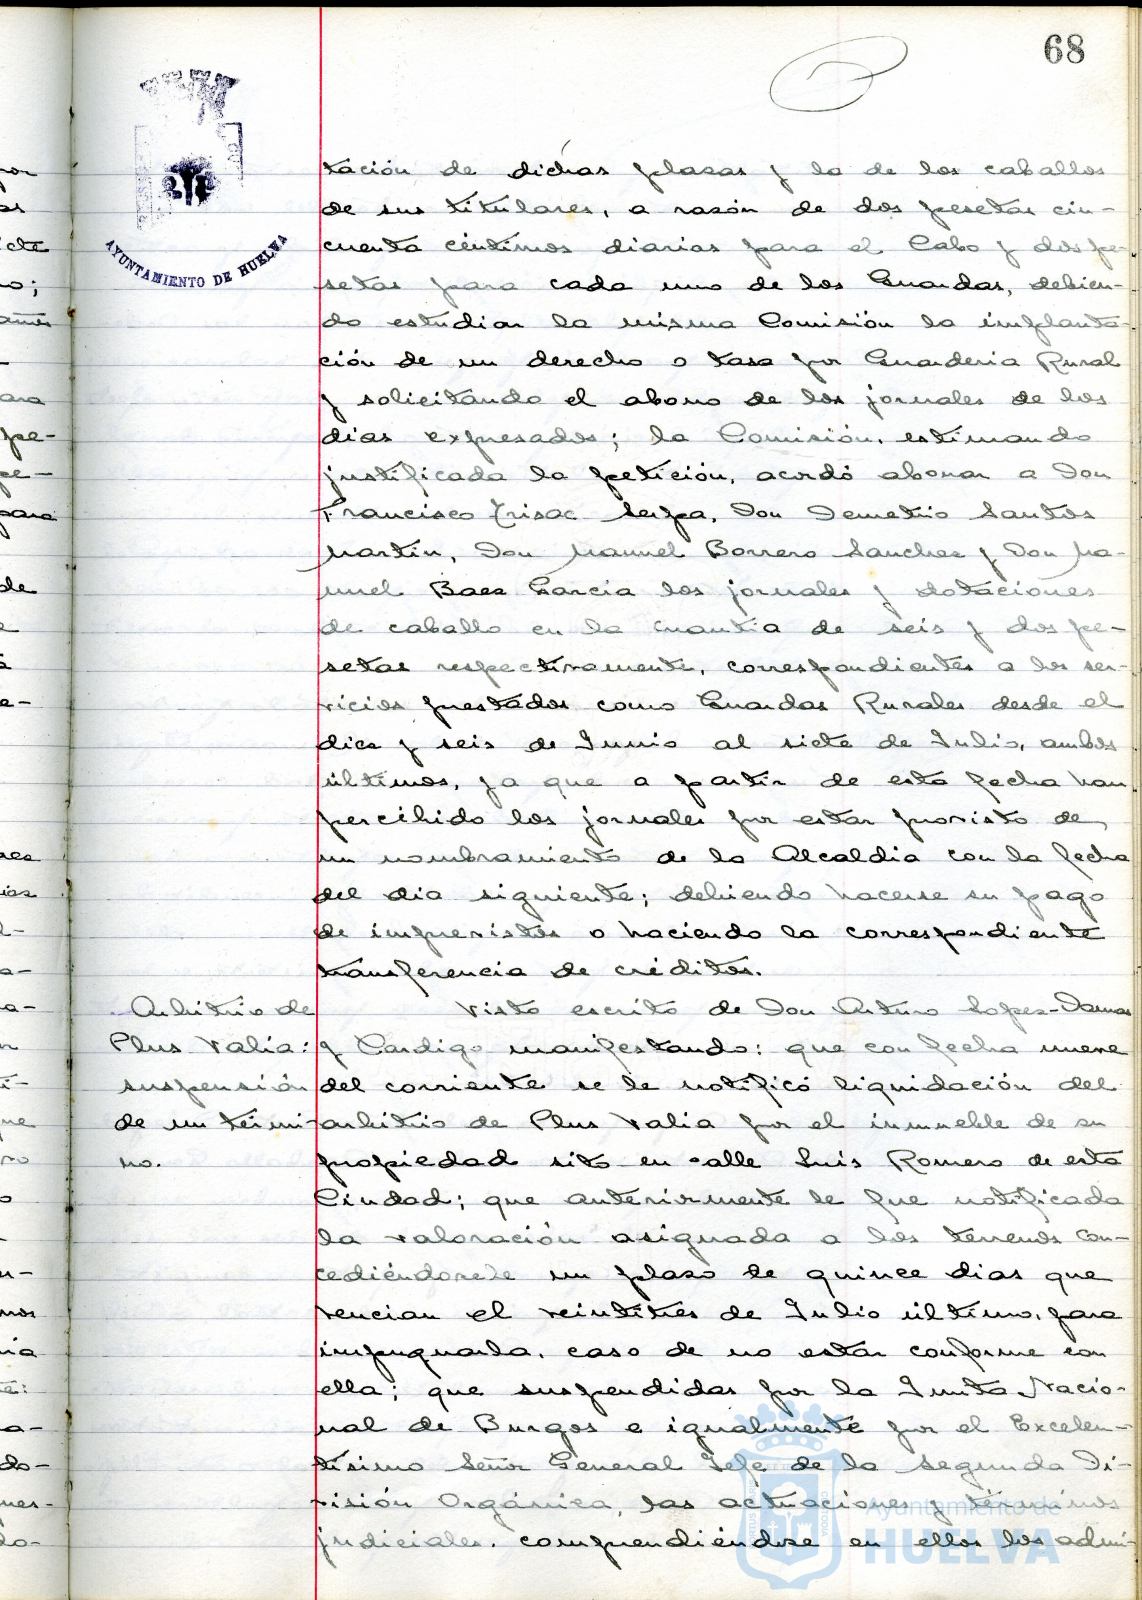 68
AYUNTAMIENTO DE HUELVA
tación de dichas plazas y la de los caballos
de sus titulares, a razón de dos pesetas cin-
cuenta céntimos diarias para el Cabo y dos pe-
setas para cada uno de los Guardas, debien-
do estudiar la misma Comisión la implanta-
ción de un derecho o tasa por Guarderia Rural
y solicitando el abono de los jornales de los
dias expresados; la Comisión, estimando
justificada la petición, acordó abonar a Don
Francisco Trisac Serpa, Don Demetrio Santos
Martin, Don Manuel Borrero Sanchez y Don Ma-
nuel Baez Garcia los jornales y dotaciones
de caballo en la cuantia de seis y dos pe-
setas respectivamente, correspondientes a los ser-
vicios prestados como Guardas Rurales desde el
diez y seis de Junio al siete de Julio, ambos
últimos, ya que a partir de esta fecha han
percibido los jornales por estar provisto de
un nombramiento de la Alcaldia con la fecha
del dia siguiente; debiendo hacerse su pago
de imprevistos o haciendo la correspondiente
transferencia de créditos.
Arbitrio de
Plus Valia:
suspensión
de un térmi-
no.
Visto escrito de Don Arturo Lopez-Damas
y Cardigo manifestando: que con fecha nueve
del corriente se le notificó liquidación del
arbitrio de Plus Valia por el inmueble de su
propiedad sito en calle Luis Romero de esta
Ciudad; que anteriormente le fue notificada
la valoración asignada a los terrenos con-
cediéndosele un plazo de quince dias que
vencian el veintitres de Julio último, para
impugnarla, caso de no estar conforme con
ella; que suspendidas por la Junta Nacio-
nal de Burgos e igualmente por el Excelen-
tisimo Señor General Jefe de la Segunda Di-
visión Orgánica, las actuaciones y términos
judiciales, comprendiéndose en ellos los admi-
Ayuntamiento de
HUELVA